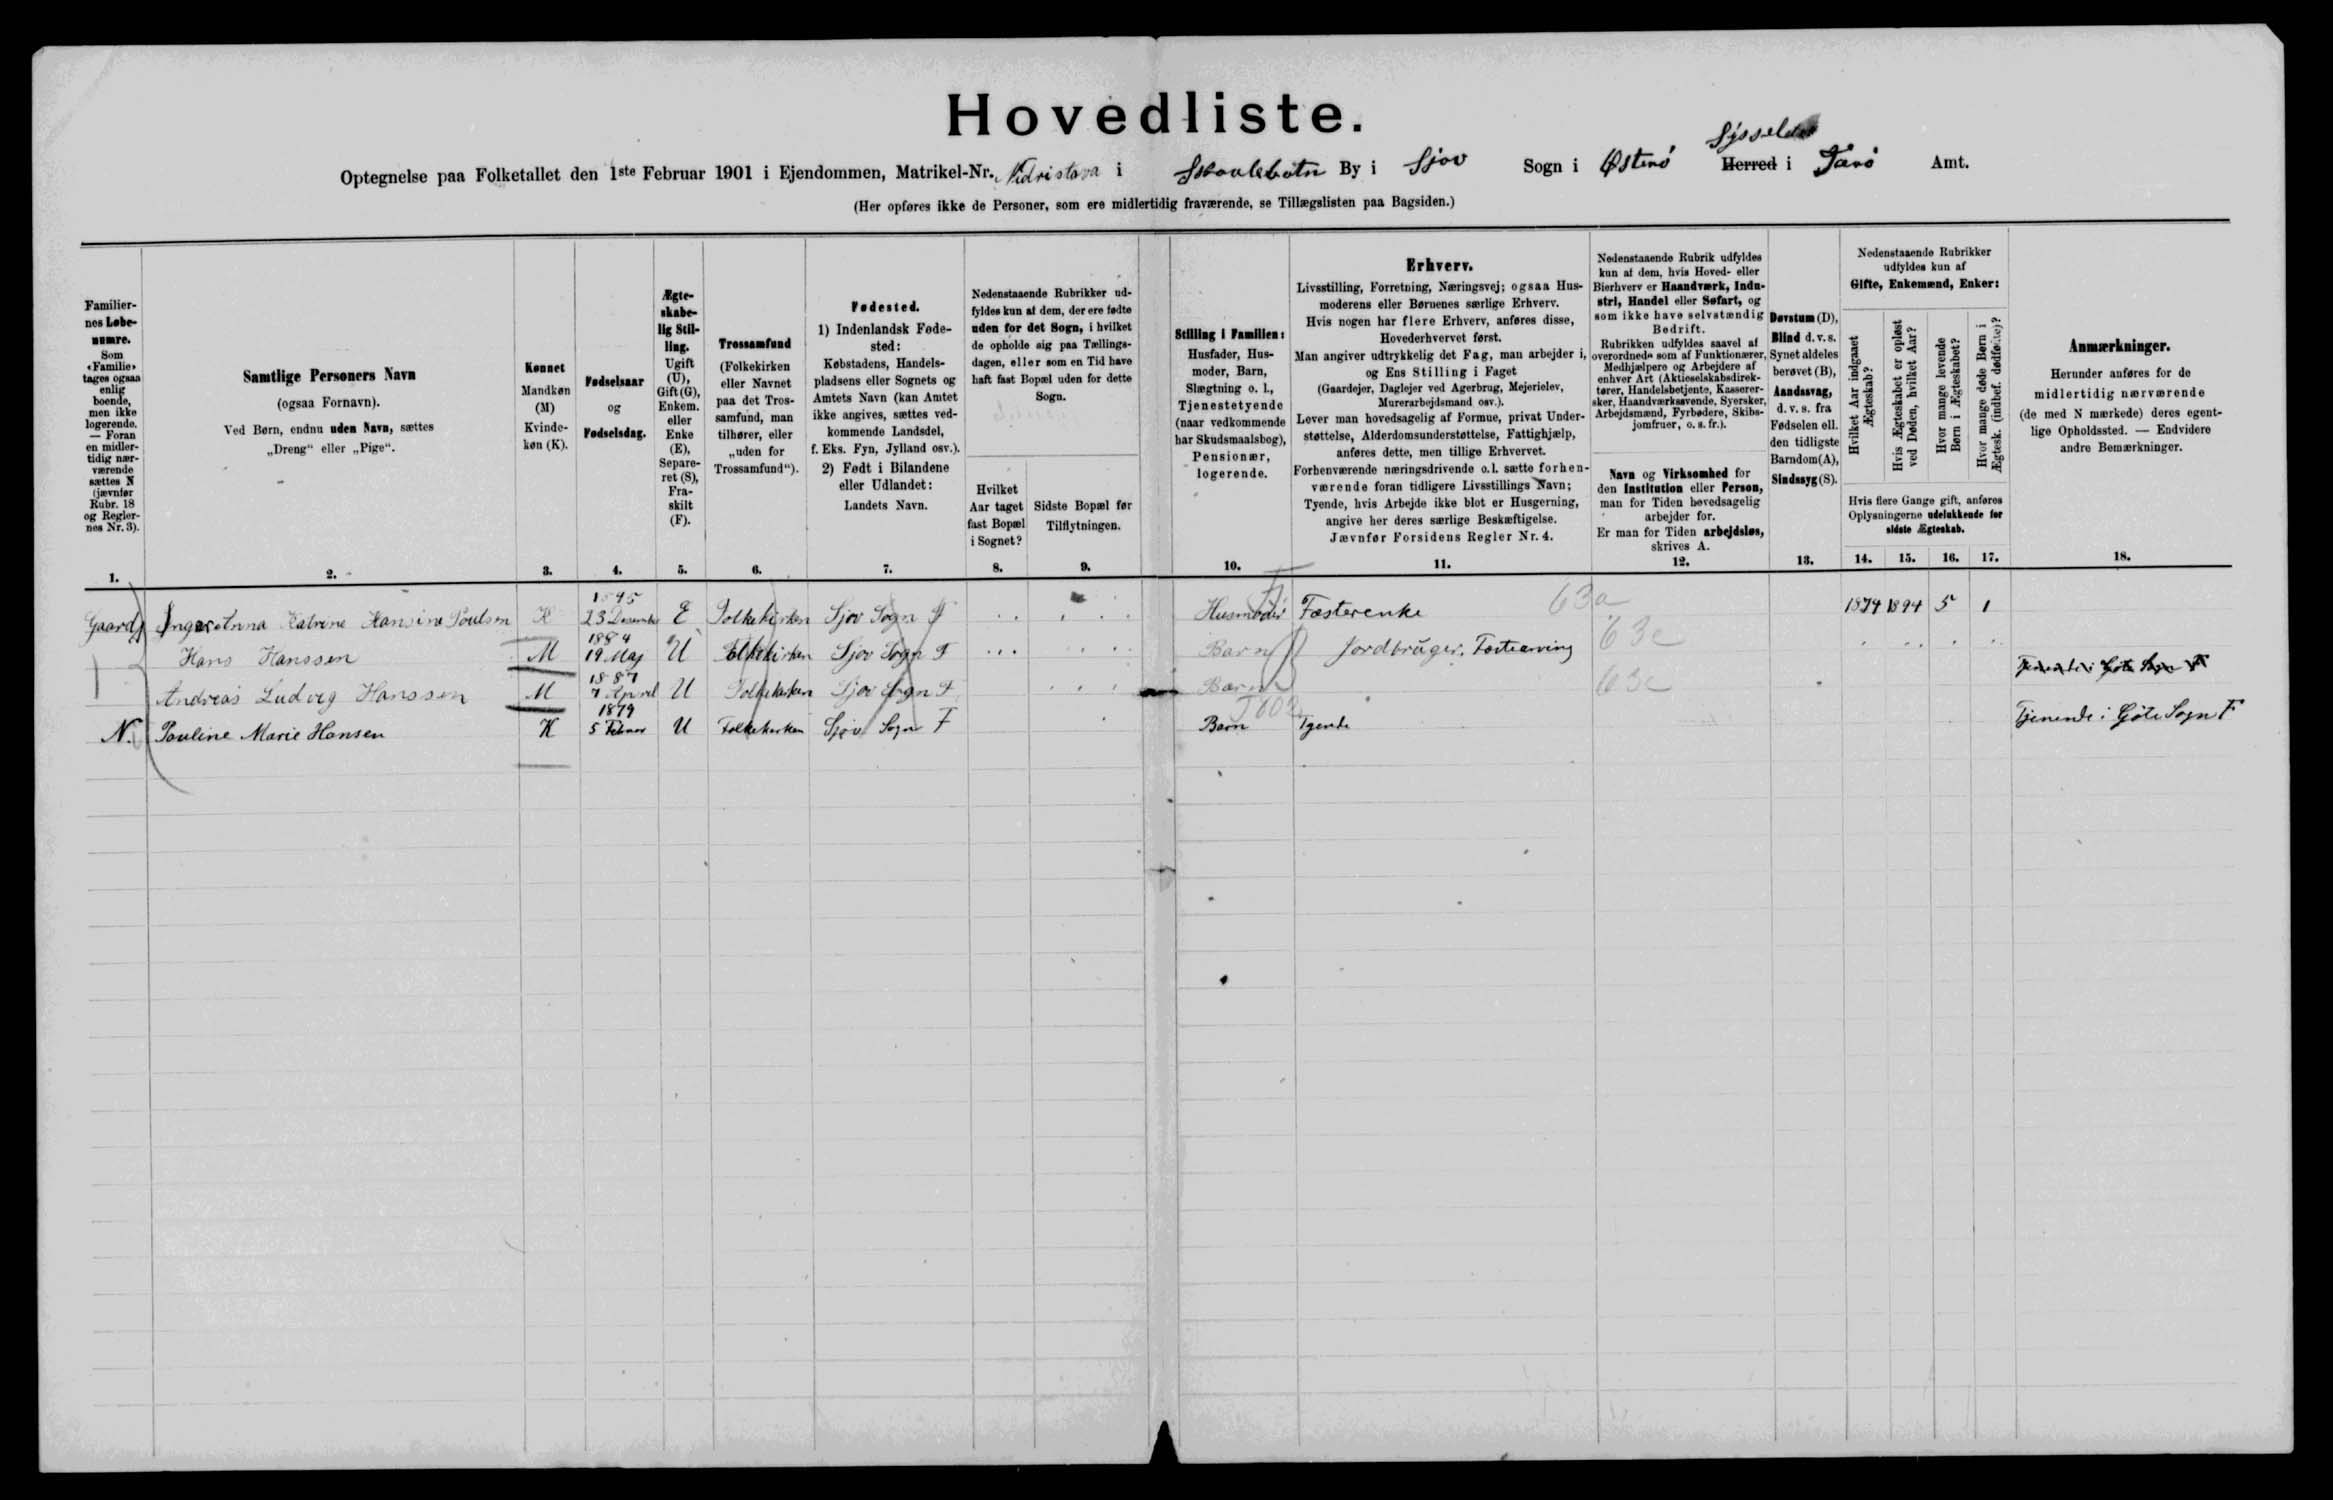 Hovedliste.
Sysselet
Optegnelse paa Folketallet den 1ste Februar 1901 i Ejendommen, Matrikel-Nr. Nidristova i Skaalebotn By i Sjov Sogn i Østerö Herred i Færö Amt.
(Her opføres ikke de Personer, som ere midlertidig fraværende, se Tillægslisten paa Bagsiden.)
Familier-
nes Løbe-
numre.
Som
«Familie»
tages ogsaa
enlig
boende,
men ikke
logerende.
— Foran
en midler-
tidig nær-
værende
sættes N
(jævnfør
Rubr. 18
og Regler-
nes Nr. 3).
1.
Samtlige Personers Navn
(ogsaa Fornavn).
Ved Børn, endnu uden Navn, sættes
„Dreng“ eller „Pige“.
2.
Kønnet
Mandkøn
(M)
Kvinde-
køn (K).
3.
Fødselsaar
og
Fødselsdag.
4.
Ægte-
skabe-
lig Stil-
ling.
Ugift
(U),
Gift (G),
Enkem.
eller
Enke
(E),
Separe-
ret (S),
Fra-
skilt
(F).
5.
Trossamfund
(Folkekirken
eller Navnet
paa det Tros-
samfund, man
tilhører, eller
„uden for
Trossamfund“).
6.
Fødested.
1) Indenlandsk Føde-
sted:
Købstadens, Handels-
pladsens eller Sognets og
Amtets Navn (kan Amtet
ikke angives, sættes ved-
kommende Landsdel,
f. Eks. Fyn, Jylland osv.).
2) Født i Bilandene
eller Udlandet:
Landets Navn.
7.
Nedenstaaende Rubrikker ud-
fyldes kun af dem, der ere fødte
uden for det Sogn, i hvilket
de opholde sig paa Tællings-
dagen, eller som en Tid have
haft fast Bopæl uden for dette
Sogn.
Hvilket
Aar taget
fast Bopæl
i Sognet?
8.
Sidste Bopæl før
Tilflytningen.
9.
Stilling i Familien:
Husfader, Hus-
moder, Barn,
Slægtning o. l.,
Tjenestetyende
(naar vedkommende
har Skudsmaalsbog),
Pensionær,
logerende.
10.
Erhverv.
Livsstilling, Forretning, Næringsvej; ogsaa Hus-
moderens eller Børnenes særlige Erhverv.
Hvis nogen har flere Erhverv, anføres disse,
Hovederhvervet først.
Man angiver udtrykkelig det Fag, man arbejder i,
og Ens Stilling i Faget
(Gaardejer, Daglejer ved Agerbrug, Mejerielev,
Murerarbejdsmand osv.).
Lever man hovedsagelig af Formue, privat Under-
støttelse, Alderdomsunderstøttelse, Fattighjælp,
anføres dette, men tillige Erhvervet.
Forhenværende næringsdrivende o.l. sætte forhen-
værende foran tidligere Livsstillings Navn;
Tyende, hvis Arbejde ikke blot er Husgerning,
angive her deres særlige Beskæftigelse.
Jævnfør Forsidens Regler Nr. 4.
11.
Nedenstaaende Rubrik udfyldes
kun af dem, hvis Hoved- eller
Bierhverv er Haandværk, Indu-
stri, Handel eller Søfart, og
som ikke have selvstændig
Bedrift.
Rubrikken udfyldes saavel af
overordnede som af Funktionærer,
Medhjælpere og Arbejdere af
enhver Art (Aktieselskabsdirek-
tører, Handelsbetjente, Kasserer-
sker, Haandværkssvende, Syersker,
Arbejdsmænd, Fyrbødere, Skibs-
jomfruer, o. s. fr.).
Navn og Virksomhed for
den Institution eller Person,
man for Tiden hovedsagelig
arbejder for.
Er man for Tiden arbejdsløs,
skrives A.
12.
Døvstum (D),
Blind d. v. s.
Synet aldeles
berøvet (B),
Aandssvag,
d. v. s. fra
Fødselen ell.
den tidligste
Barndom (A),
Sindssyg (S).
13.
Nedenstaaende Rubrikker
udfyldes kun af
Gifte, Enkemænd, Enker:
Hvilket Aar indgaaet
Ægteskab?
Hvis Ægteskabet er opløst
ved Døden, hvilket Aar?
Hvor mange levende
Børn i Ægteskabet?
Hvor mange døde Børn i
Ægtesk. (indbef. dødfødte)?
Hvis flere Gange gift, anføres
Oplysningerne udelukkende for
sidste Ægteskab.
14. 15. 16. 17.
Anmærkninger.
Herunder anføres for de
midlertidig nærværende
(de med N mærkede) deres egent-
lige Opholdssted. — Endvidere
andre Bemærkninger.
18.
Gaard Anna Katrine Hansine Poulsen K 1845 23 December E Folkekirken Sjov Sogn F Husmoder Fæsterenke 63a 1874 1894 5 1
1 Hans Hanssen M 1884 19 Maj U Folkekirken Sjov Sogn F Barn Jordbruger, 63c
Andreas Ludvig Hanssen M 1887 7 April U Folkekirken Sjov Sogn F Barn 63c Tjenende i Göte Sogn F
N. Pauline Marie Hansen K 1879 5 U Folkekirken Sjov Sogn F Barn Tjende Tjenende i Göte Sogn F